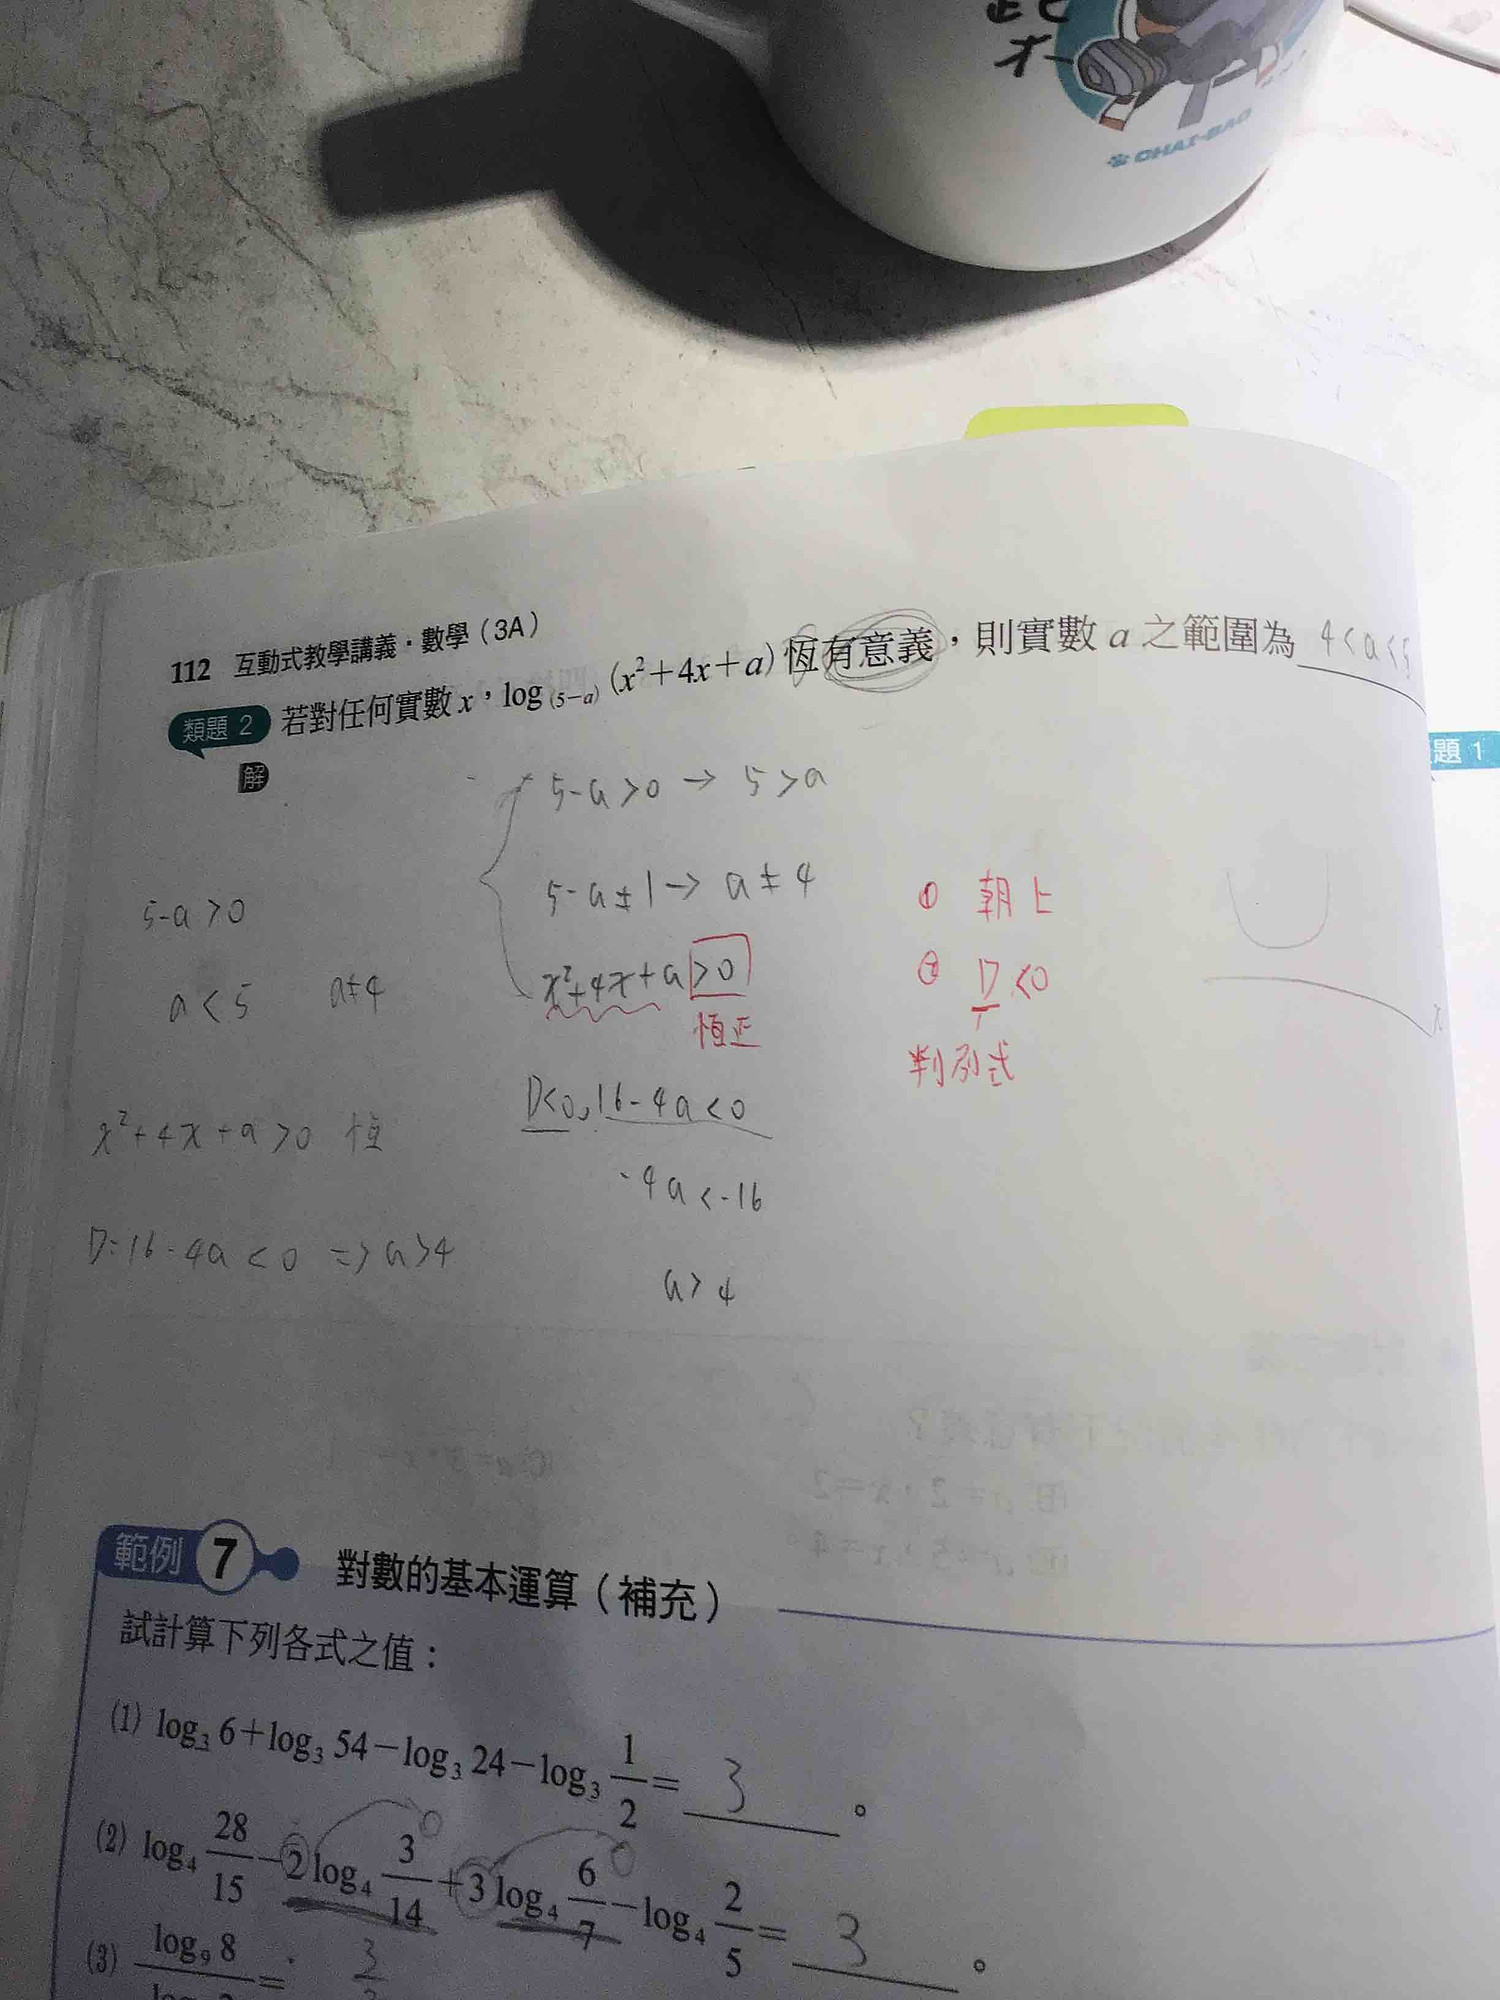 起
才
CHAI-BAO
112 互動式教學講義·數學(3A)
類題 2 若對任何實數 x,log₍₅₋ₐ₎ (x²+4x+a) 恆有意義,則實數 a 之範圍為 4<a<5
題 1
解
5-a>0 → 5>a
5-a≠1 → a≠4
x²+4x+a>0
恒正
D<0, 16-4a<0
-4a<-16
a>4
5-a>0
a<5 a≠4
x²+4x+a>0 恒
D=16-4a<0 => a>4
① 朝上
② D<0
判別式
x
範例 7 對數的基本運算(補充)
試計算下列各式之值:
(1) log₃ 6+log₃ 54-log₃ 24-log₃ 1/2= 3 。
(2) log₄ 28/15-2log₄ 3/14+3log₄ 6/7-log₄ 2/5= 3 。
(3) log₉ 8